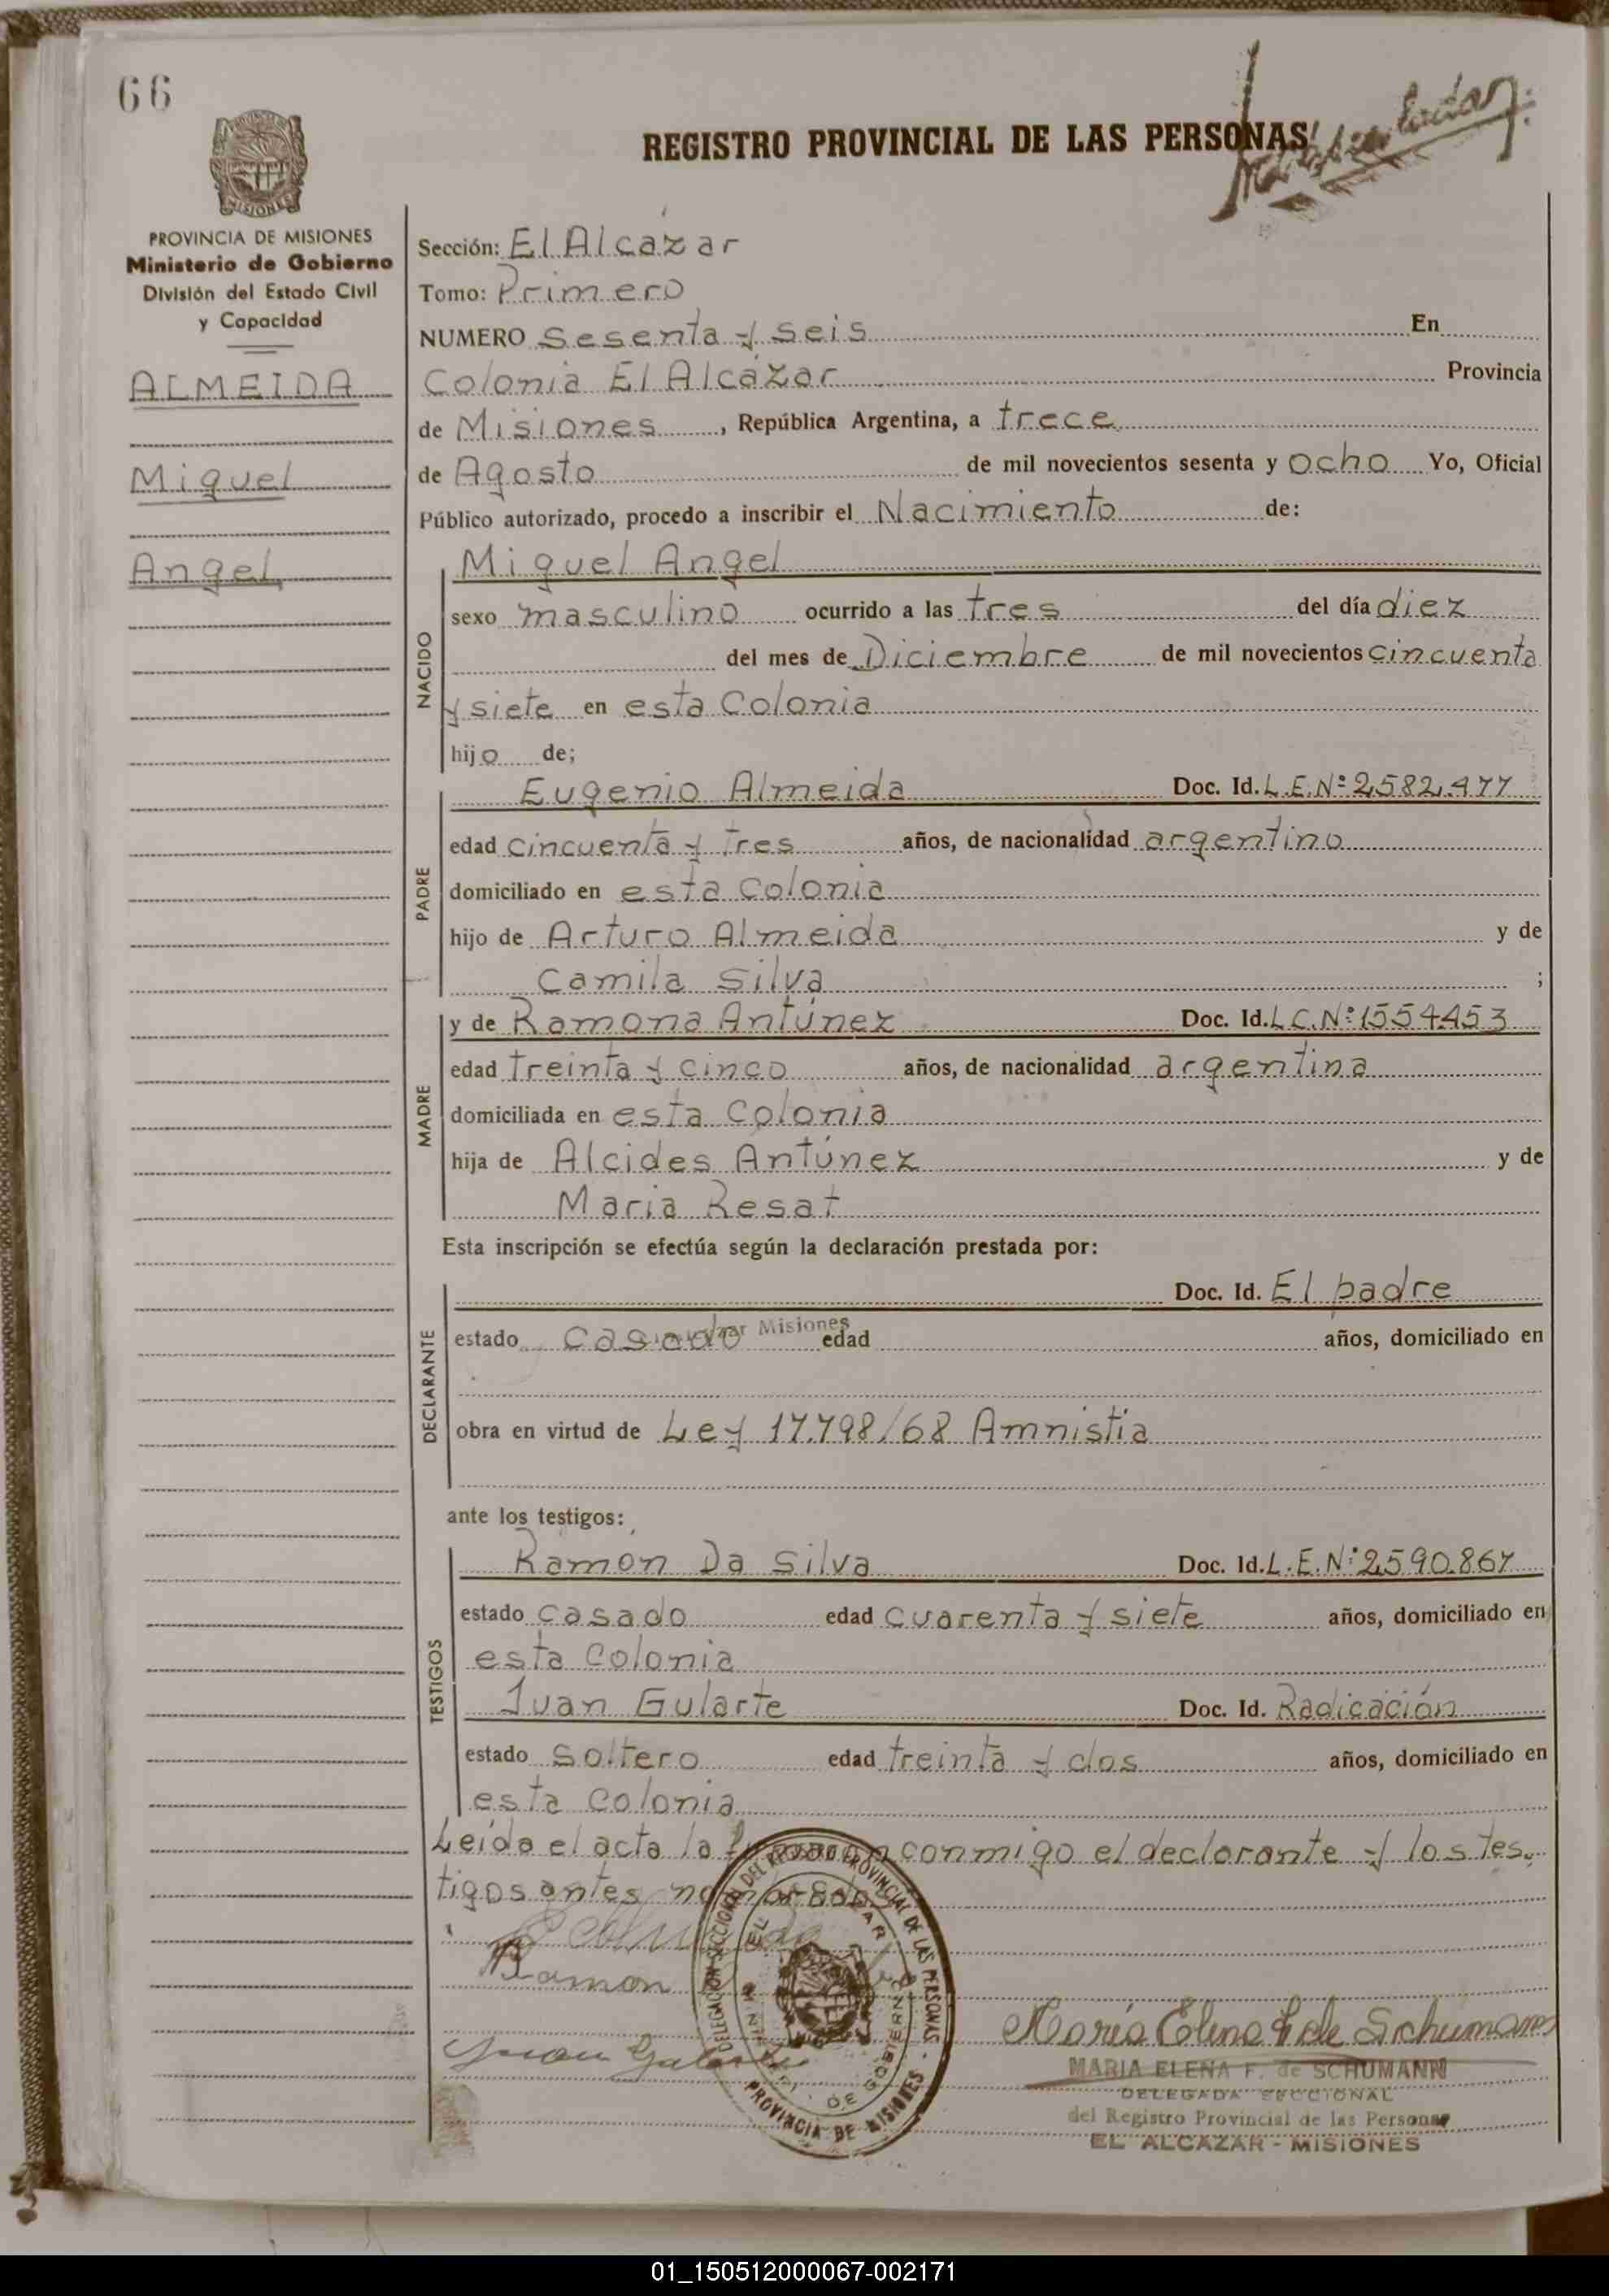 66
REGISTRO PROVINCIAL DE LAS PERSONAS
MISIONES
PROVINCIA DE MISIONES
Ministerio de Gobierno
División del Estado Civil
y Capacidad
ALMEIDA
Miguel
Angel
Sección: El Alcázar
Tomo: Primero
NUMERO Sesenta y seis En
Colonia El Alcázar Provincia
de Misiones, República Argentina, a trece
de Agosto de mil novecientos sesenta y ocho Yo, Oficial
Público autorizado, procedo a inscribir el Nacimiento de:
NACIDO
Miguel Angel
sexo masculino ocurrido a las tres del día diez
del mes de Diciembre de mil novecientos cincuenta
y siete en esta Colonia
hijo de;
PADRE
Eugenio Almeida Doc. Id. L.E.Nº 2.582.477
edad cincuenta y tres años, de nacionalidad argentino
domiciliado en esta Colonia
hijo de Arturo Almeida y de
Camila Silva ;
MADRE
y de Ramona Antúnez Doc. Id. L.C.Nº 1554453
edad treinta y cinco años, de nacionalidad argentina
domiciliada en esta Colonia
hija de Alcides Antúnez y de
Maria Resat
Esta inscripción se efectúa según la declaración prestada por:
DECLARANTE
Doc. Id. El padre
estado casado Misiones edad años, domiciliado en
obra en virtud de Ley 17.798/68 Amnistia
ante los testigos:
TESTIGOS
Ramón Da Silva Doc. Id. L.E.Nº 2.590.867
estado casado edad cuarenta y siete años, domiciliado en
esta Colonia
Juan Gularte Doc. Id. Radicación
estado soltero edad treinta y dos años, domiciliado en
esta Colonia
Leida el acta la conmigo el declarante y los tes-
tigos antes nombrados
Ramon
Juan Gularte
DELEGACION SECCIONAL DEL REGISTRO PROVINCIAL DE LAS PERSONAS
EL ALCAZAR
MINISTERIO DE GOBIERNO
PROVINCIA DE MISIONES
Maria Elena F de Schumann
MARIA ELENA F. de SCHUMANN
DELEGADA SECCIONAL
del Registro Provincial de las Personas
EL ALCAZAR - MISIONES
01_150512000067-002171